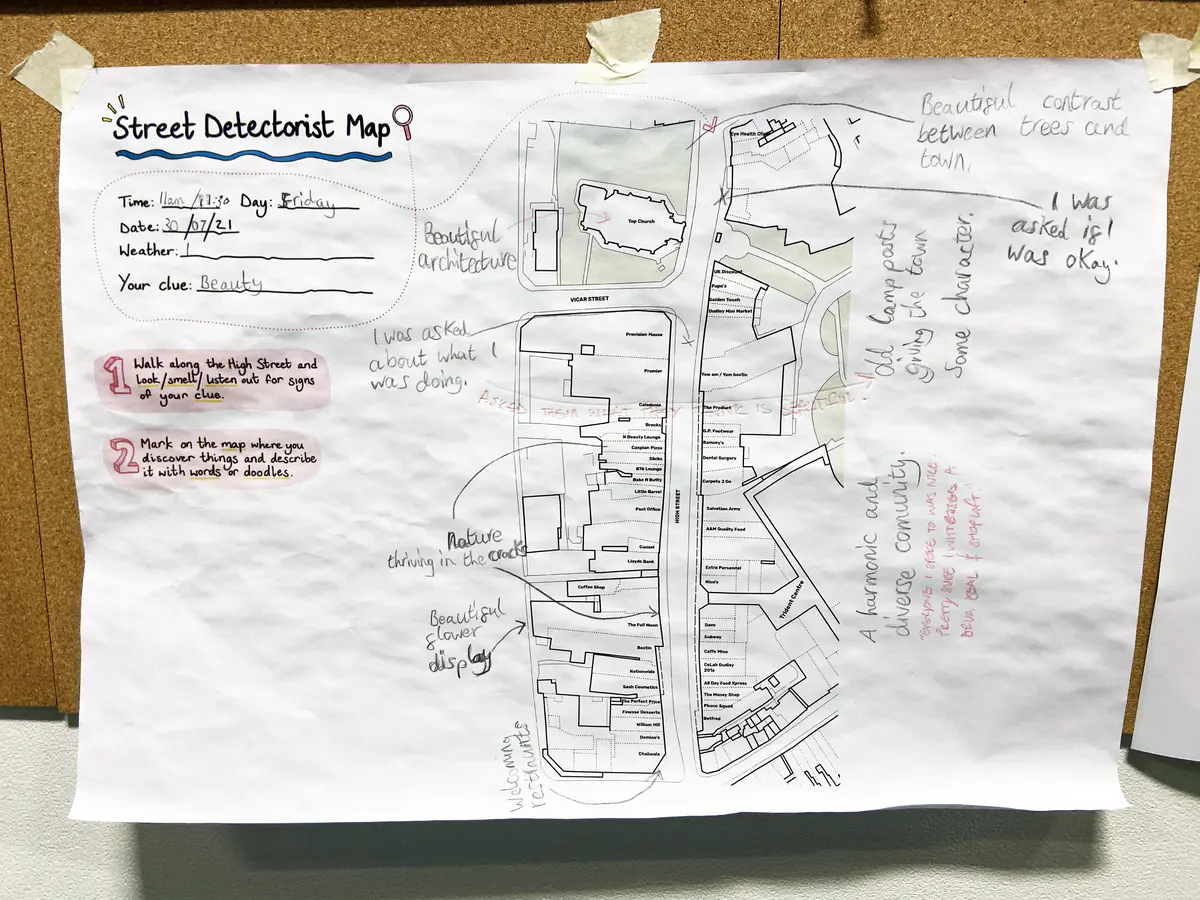 Street Detectorist Map
Time: 11am / 11:30 Day: Friday
Date: 30/07/21
Weather:
Your clue: Beauty
1 Walk along the High Street and
look/smell/listen out for signs
of your clue.
2 Mark on the map where you
discover things and describe
it with words or doodles.
Beautiful contrast
between trees and
town.
I was
asked if I
was okay.
Beautiful
architecture
I was asked
about what I
was doing.
ASKED THEM WHAT THEY THINK IS BEAUTIFUL.
Nature
thriving in the cracks
Beautiful
flower
display
Welcoming
restraunts
Old lamp posts
giving the town
some character.
A harmonic and
diverse community.
"EVERYONE I SPOKE TO WAS NICE.
PRETTY SURE I WITNESSED A
DRUG DEAL & SHOPLIFT."
Top Church
VICAR STREET
HIGH STREET
Provision House
Premier
Caledonia
Brucks
N Beauty Lounge
Caspian Pizza
Slicks
876 Lounge
Bake N Butty
Little Barrel
Post Office
Consol
Lloyds Bank
Coffee Shop
The Full Moon
Bostin
Nationwide
Sash Cosmetics
The Perfect Price
Finesse Desserts
William Hill
Domino's
Chaiiwala
Eye Health
UK Discount
Papa's
Golden Touch
Dudley Mini Market
Yow am / Yum bostin
The Product
G.P. Footwear
Ramsey's
Dental Surgery
Carpets 2 Go
Salvation Army
A&M Quality Food
Extra Personnel
Nico's
Trident Centre
Dave
Subway
Caffe Mina
CoLab Dudley
201a
All Day Food Xpress
The Money Shop
Phone Squad
Betfred